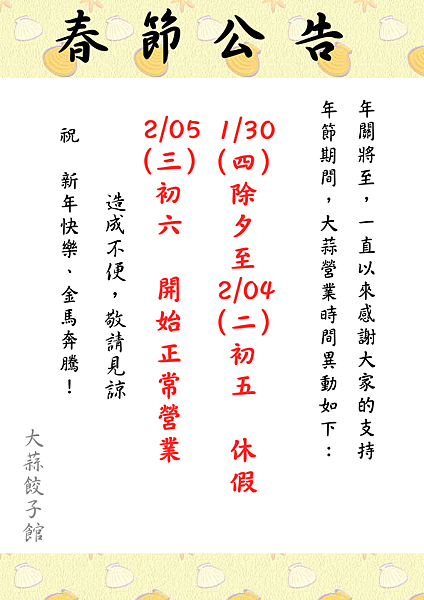 春節公告
年關將至，一直以來感謝大家的支持
年節期間，大蒜營業時間異動如下：
1/30(四)除夕至2/04(二)初五 休假
2/05(三)初六 開始正常營業
造成不便，敬請見諒
祝 新年快樂、金馬奔騰！
大蒜餃子館